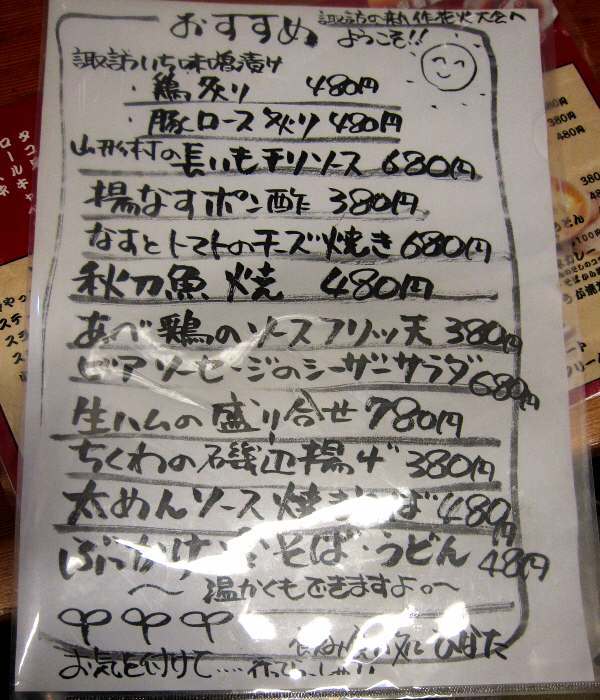 おすすめ
諏訪の新作花火大会へ
ようこそ!!
諏訪いち味噌漬け
・鶏炙り 480円
・豚ロース炙り 480円
山形村の長いもチリソース 680円
揚なすポン酢 380円
なすとトマトのチーズ焼き 680円
秋刀魚焼 480円
あべ鶏のソースフリッ天 380円
ビアソーセージのシーザーサラダ 680円
生ハムの盛り合せ 780円
ちくわの磯辺揚げ 380円
太めんソース焼きそば 480円
ぶっかけ・そば・うどん 480円
〜温かくもできますよ。〜
ひなた
お気を付けて‥‥行ってらっしゃい!